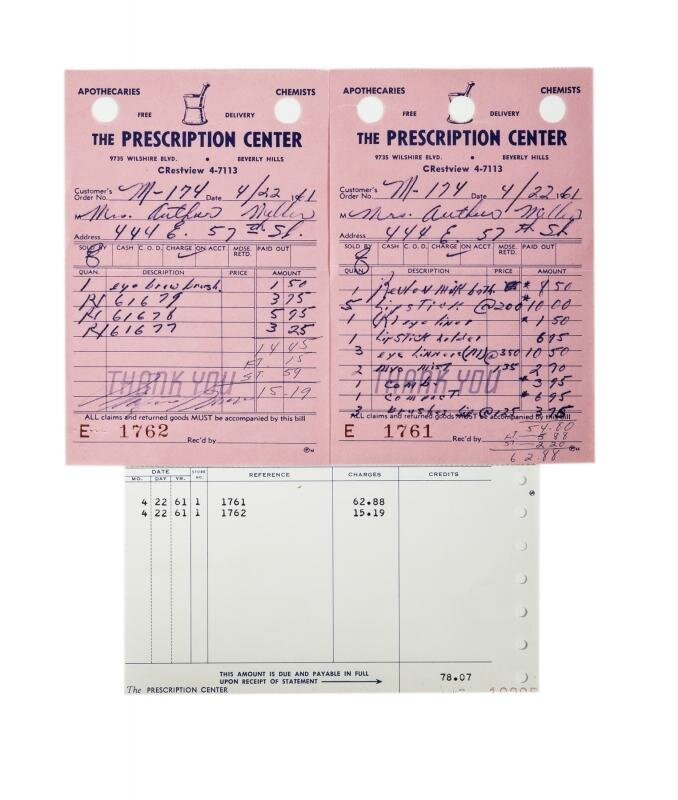 APOTHECARIES CHEMISTS
FREE DELIVERY
THE PRESCRIPTION CENTER
9735 WILSHIRE BLVD. • BEVERLY HILLS
CRestview 4-7113
Customer's Order No. M-174 Date 4/22 1961
M Mrs. Arthur Miller
Address 444 E. 57th St.
SOLD BY CASH C.O.D. CHARGE ON ACCT MDSE. RETD. PAID OUT
QUAN. DESCRIPTION PRICE AMOUNT
1 eye brow brush 1 50
RX 61679 3 75
RX 61678 5 95
RX 61677 3 25
14 45
FT. 15
ST. 59
THANK YOU 15-19
ALL claims and returned goods MUST be accompanied by this bill
E 1762 Rec'd by
APOTHECARIES CHEMISTS
FREE DELIVERY
THE PRESCRIPTION CENTER
9735 WILSHIRE BLVD. • BEVERLY HILLS
CRestview 4-7113
Customer's Order No. M-174 Date 4/22 1961
M Mrs. Arthur Miller
Address 444 E. 57th St
SOLD BY CASH C.O.D. CHARGE ON ACCT MDSE. RETD. PAID OUT
QUAN. DESCRIPTION PRICE AMOUNT
1 Revlon milk bath * 8 50
5 Lipstick @200 * 10 00
1 eye liner * 1 50
1 Lipstick holder 6 95
3 eye linners @350 10 50
2 mist 1.35 2 70
1 comb * 3 95
1 compact * 6 95
3 brushes @125 3 75
THANK YOU
ALL claims and returned goods MUST be accompanied by this bill
54.80
FT 5 88
ST. 2 20
62.88
E 1761 Rec'd by
DATE STORE NO. REFERENCE CHARGES CREDITS
MO. DAY YR.
4 22 61 1 1761 62.88
4 22 61 1 1762 15.19
THIS AMOUNT IS DUE AND PAYABLE IN FULL
UPON RECEIPT OF STATEMENT 78.07
The PRESCRIPTION CENTER